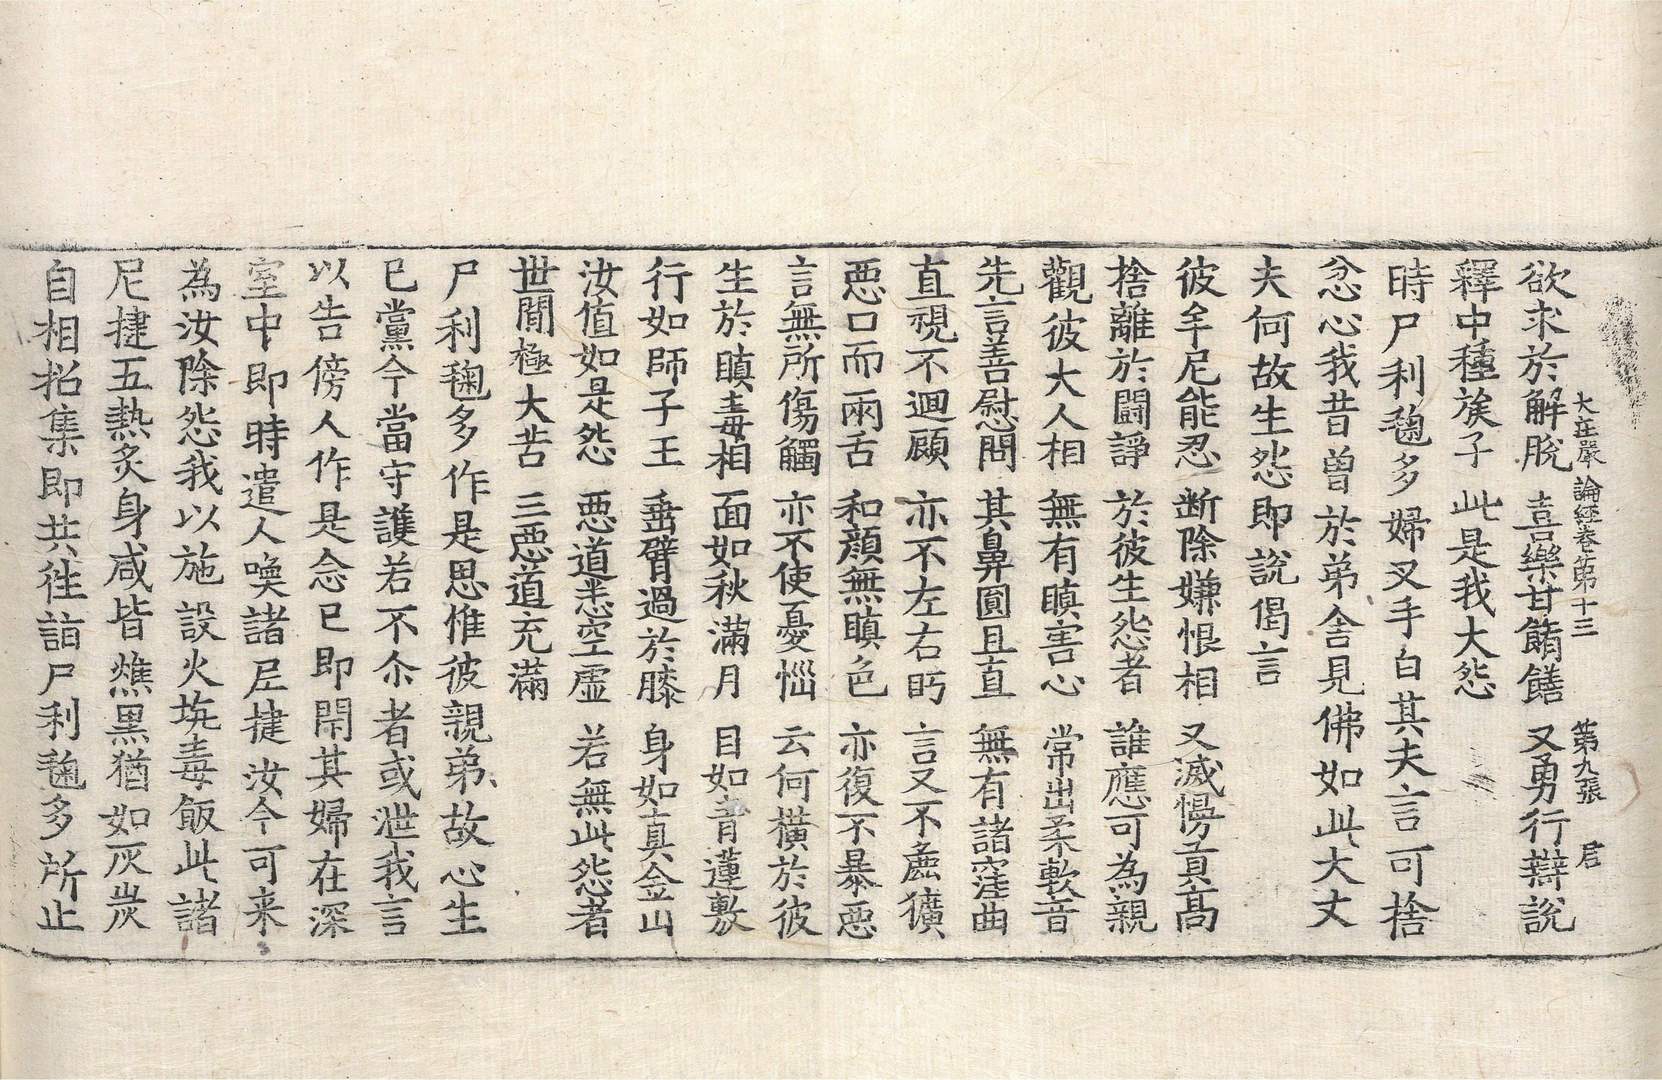 大莊嚴論經卷第十三 第九張 居
欲求於解脫 喜樂甘餚饍 又勇行辯說
釋中種族子 此是我大怨
時尸利毱多婦叉手白其夫言可捨
忿心我昔曾於弟舍見佛如此大丈
夫何故生怨即說偈言
彼牟尼能忍 断除嫌恨相 又滅憍慢貢高
捨離於鬪諍 於彼生怨者 誰應可為親
觀彼大人相 無有瞋害心 常出柔軟音
先言善慰問 其鼻圓且直 無有諸窪曲
直視不迴顧 亦不左右眄 言又不麁獷
惡口而兩舌 和顔無瞋色 亦復不暴惡
言無所傷觸 亦不使憂惱 云何橫於彼
生於瞋毒相 面如秋滿月 目如青蓮敷
行如師子王 垂臂過於膝 身如真金山
汝值如是怨 惡道悉空虛 若無此怨者
世間極大苦 三惡道充滿
尸利毱多作是思惟彼親弟故心生
已黨今當守護若不尒者或泄我言
以告傍人作是念已即閇其婦在深
室中即時遣人喚諸尼揵汝今可来
為汝除怨我以施設火坑毒飯此諸
尼揵五熱炙身咸皆燋黑猶如灰炭
自相招集即共往詣尸利毱多所止